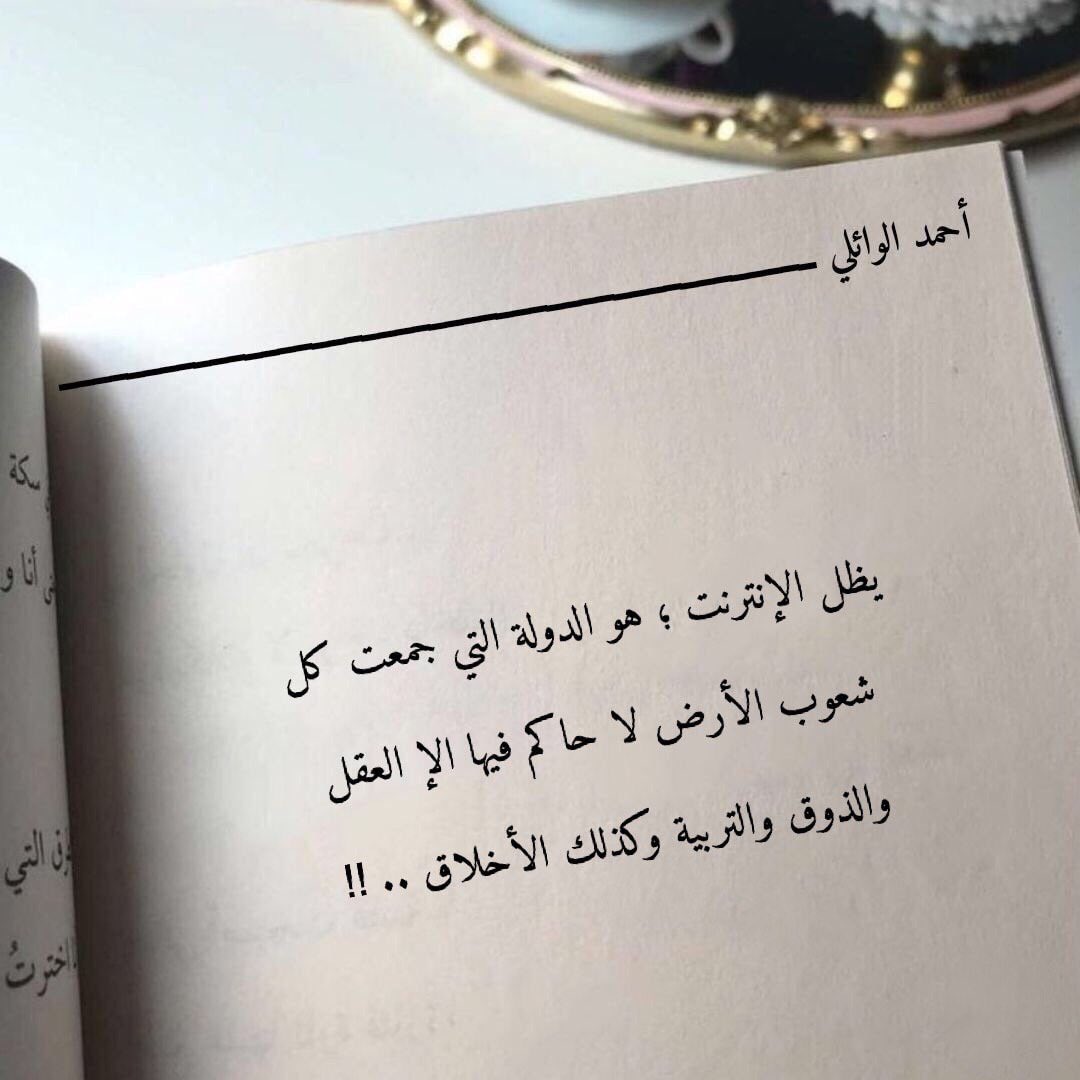 أحمد الوائلي
يظل الإنترنت ؛ هو الدولة التي جمعت كل
شعوب الأرض لا حاكم فيها الإ العقل
والذوق والتربية وكذلك الأخلاق .. !!
سكة
أنا و
التي
اخترتُ